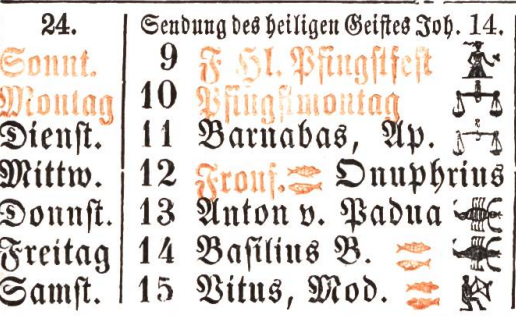 24. Sendung des heiligen Geistes Joh. 14.
Sonnt. 9 F Hl. Pfingstfest
Montag 10 Pfingstmontag
Dienst. 11 Barnabas, Ap.
Mittw. 12 Fronf. Onuphrius
Donnst. 13 Anton v. Padua
Freitag 14 Basilius B.
Samst. 15 Vitus, Mod.